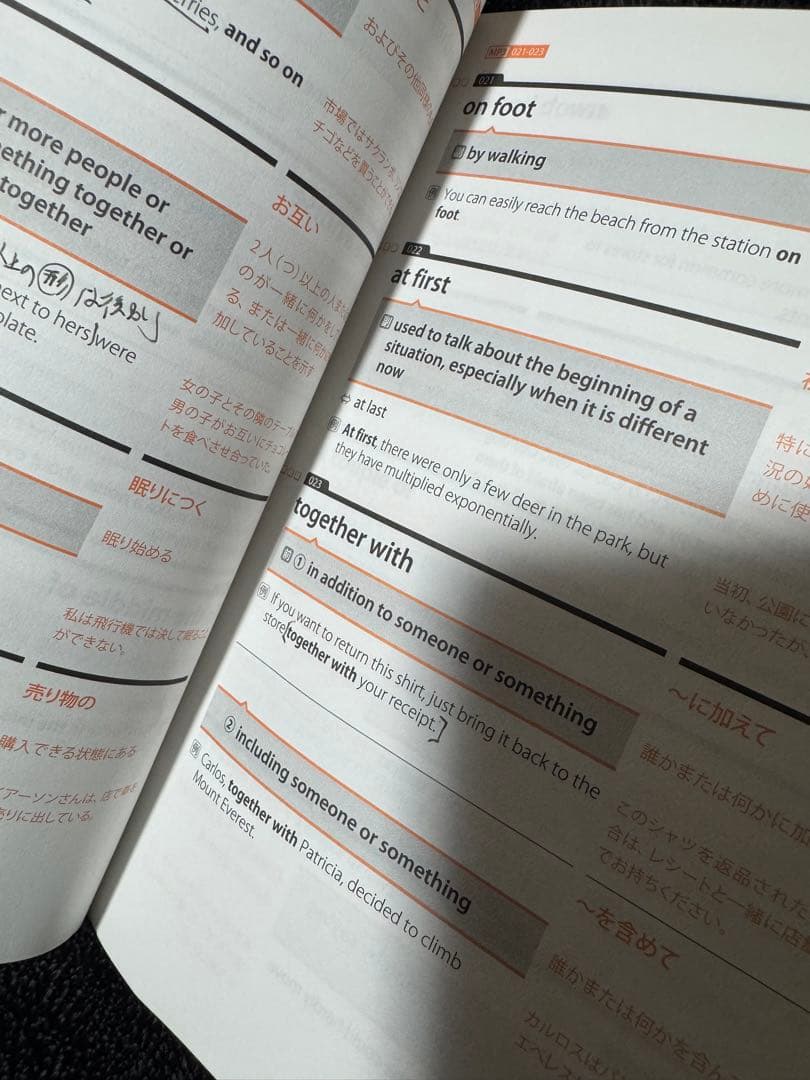 and so on
市場ではサクラン
チゴなどを買うことができ
more people or
together or
together
お互い
2人(つ)以上の人
のが一緒に何かを
る、または一緒に何か
加していることを示す
next to hers were
女の子とその隣のテーブル
男の子がお互いにチョコ
トを食べさせ合っていた
眠りにつく
眠り始める
私は飛行機では決して眠るこ
ができない。
売り物の
購入できる状態にある
MP3 021-023
021
on foot
by walking
例 You can easily reach the beach from the station on
foot.
022
at first
used to talk about the beginning of a
situation, especially when it is different
now
⇔ at last
例 At first, there were only a few deer in the park, but
they have multiplied exponentially.
特に
況の
めに使
当初、公園に
いなかったが、
023
together with
① in addition to someone or something
例 If you want to return this shirt, just bring it back to the
store together with your receipt.
～に加えて
誰かまたは何かに加
このシャツを返品された
合は、レシートと一緒に店
でお持ちください。
② including someone or something
例 Carlos, together with Patricia, decided to climb
Mount Everest.
～を含めて
誰かまたは何かを含ん
カルロスは
エベレス